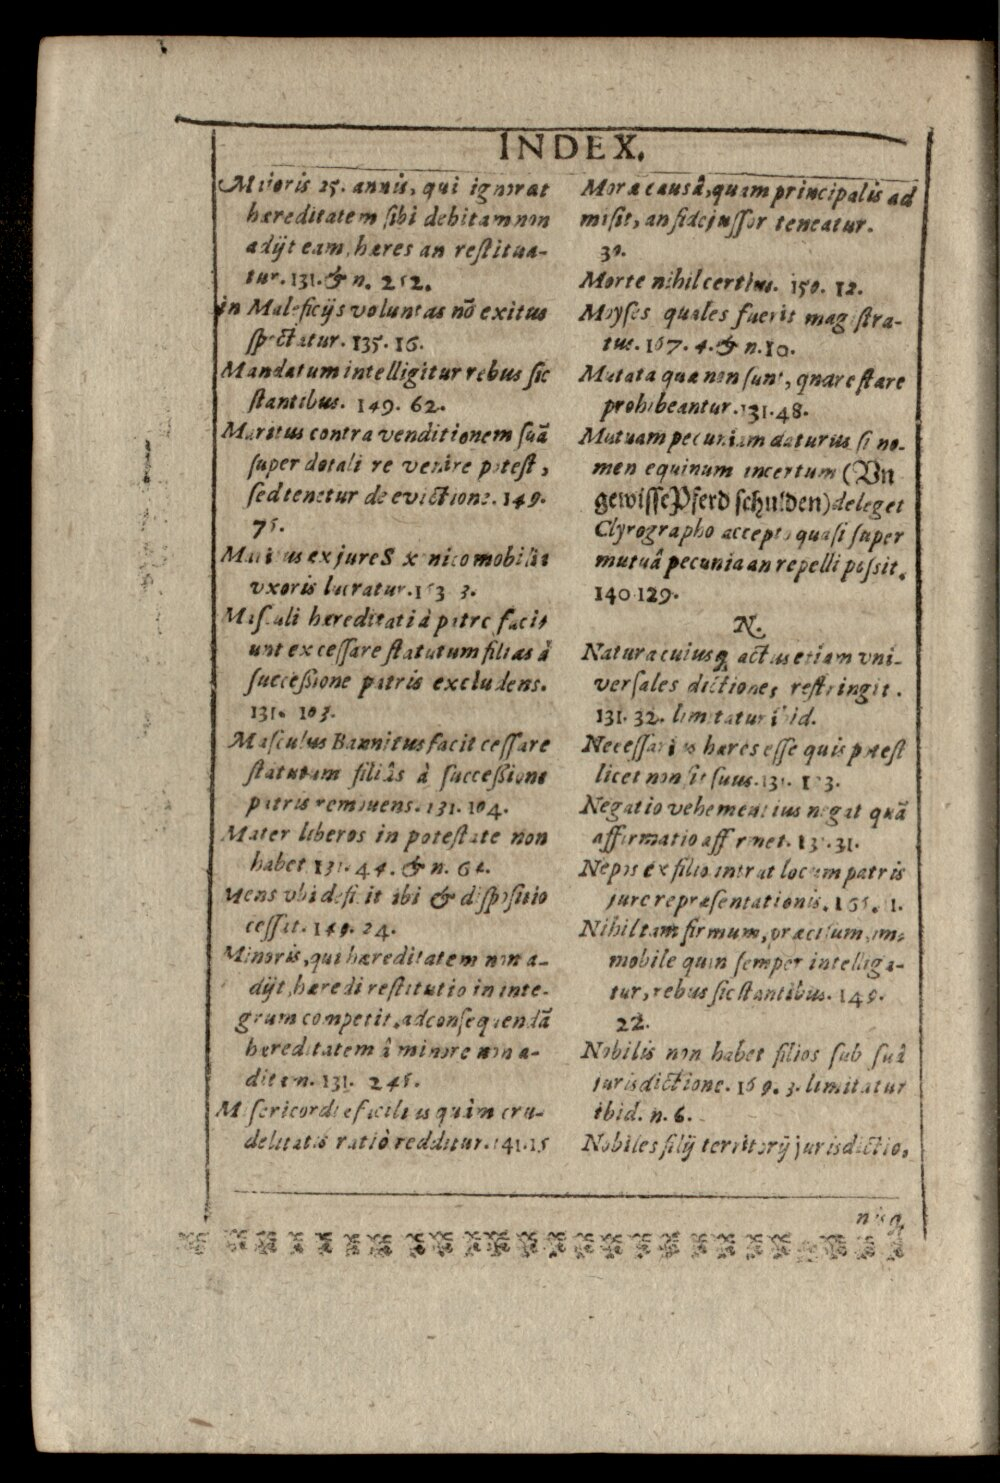 INDEX.
Maioris 25. annis, qui ignorat
hæreditatem ſibi debitam non
adijt eam, hæres an reſtitua-
tur. 131. & n. 252.
in Maleficijs voluntas nō exitus
ſpectatur. 135. 16.
Mandatum intelligitur rebus ſic
ſtantibus. 149. 62.
Maritus contra venditionem ſuā
ſuper dotali re venire poteſt,
ſed tenetur de evictione. 149.
75.
Maritus ex jure Saxonico mobilia
vxoris lucratur. 3.
Maſculi hæreditati à patre facit
unt exceſſare ſtatutum filias à
ſucceſſione patris excludens.
131. 103.
Maſculus Bannitus facit ceſſare
ſtatutum filiâs à ſucceſſione
patris removens. 131. 104.
Mater liberos in poteſtate non
habet 131. 44. & n. 62.
Mens vbi deficit ibi & diſpoſitio
ceſſat. 149. 24.
Minoris, qui hæreditatem non a-
dijt, hæredi reſtitutio in inte-
grum competit, ad conſequendā
hæreditatem â minore non a-
ditam. 131. 245.
Miſericordiæ facilius quàm cru-
delitatis ratio redditur. 141. 15
Moræ causâ, quam principalis ad
miſit, an fidejuſſor teneatur.
30.
Morte nihil certius. 150. 12.
Moyſes quales fuerit magiſtra-
tus. 167. 4. & n. 10.
Mutata quæ non ſunt, qnare ſtare
prohibeantur. 131. 48.
Mutuam pecuniam daturus ſi no-
men equinum incertum (Vn
gewiſſe Pferd ſchulden) deleget
Clyrographo accepto quaſi ſuper
mutuâ pecunia an repelli poſsit.
140 129.
N.
Natura cuiusq; actus etiam vni-
verſales dictiones reſtringit.
131. 32. limitatur ibid.
Neceſſarius hæres eſſe quis poteſt
licet non ſit ſuus. 131. 3.
Negatio vehementius negat quā
affirmatio affirmet. 131. 31.
Nepos ex filio intrat locum patris
jure repræſentationis. 165. 1.
Nihil tam firmum, præciſum, im-
mobile quin ſemper intelliga-
tur, rebus ſic ſtantibus. 149.
22.
Nobilis non habet filios ſub ſuâ
jurisdictione. 169. 3. limitatur
ibid. n. 6.
Nobiles filij territorij jurisdictio,